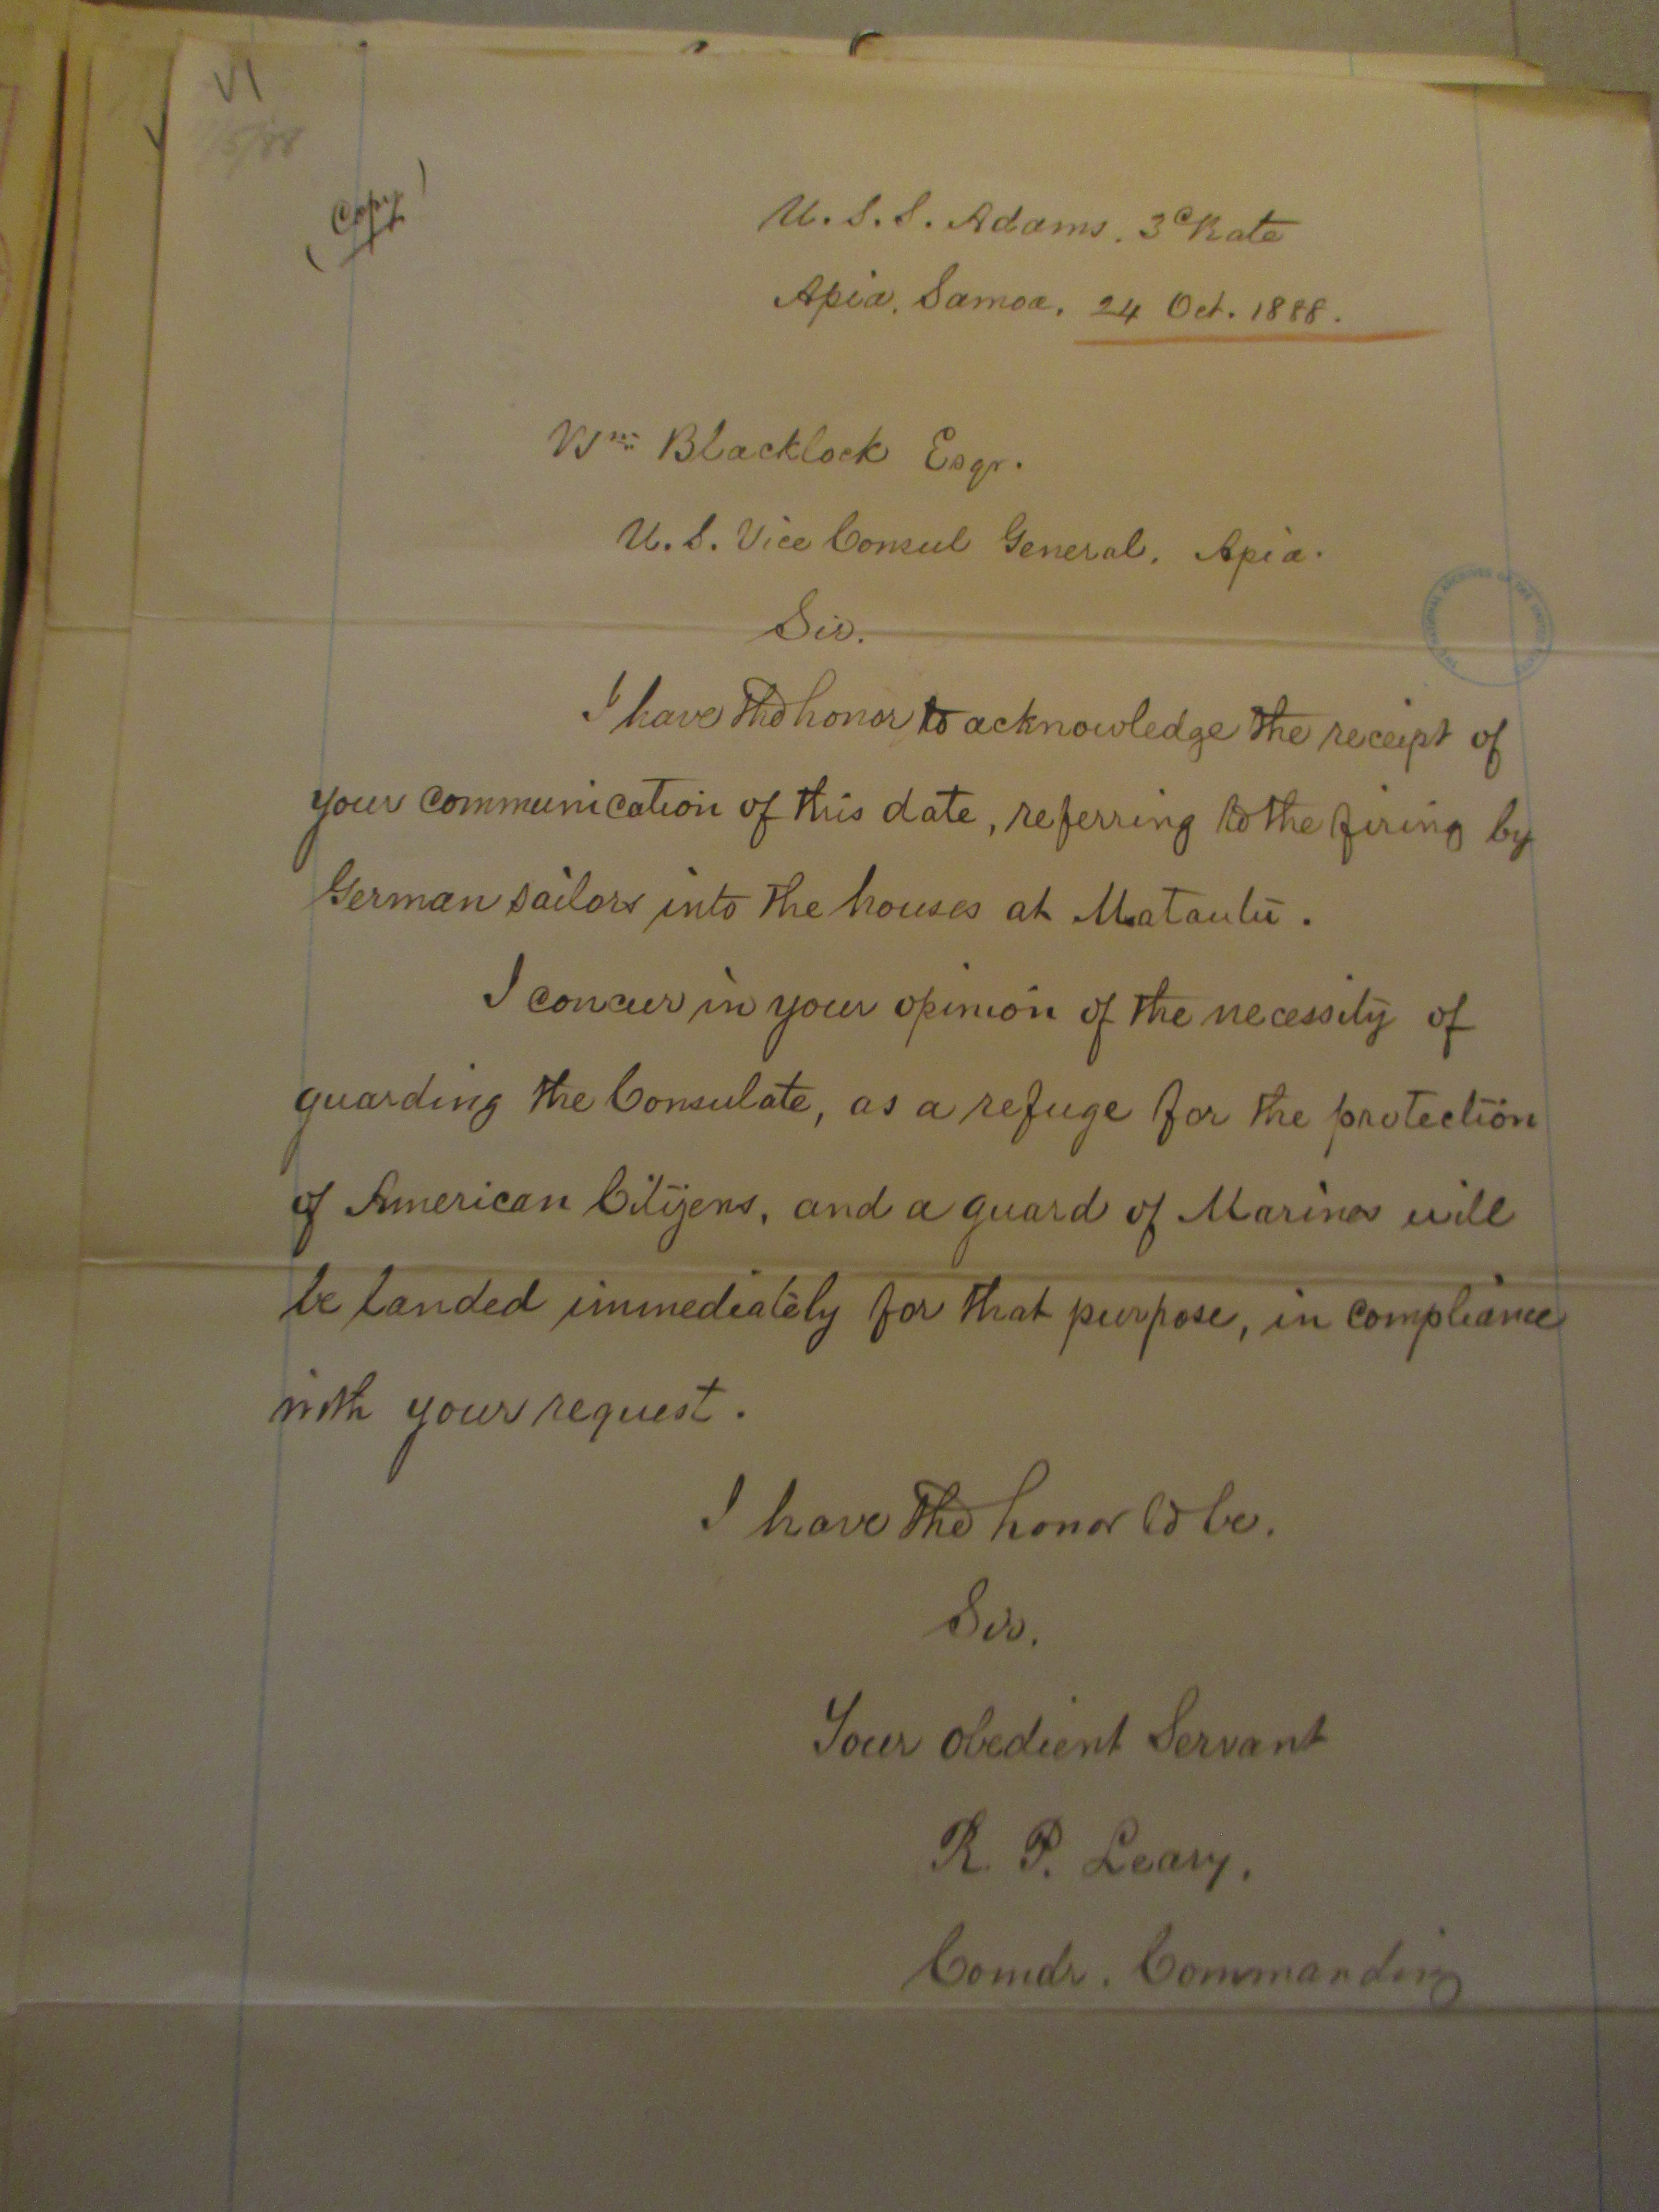 VI
(Copy)
U.S.S. Adams. 3d Rate
Apia. Samoa. 24 Oct. 1888.
Wm Blacklock Esqr.
U.S. Vice Consul General. Apia.
Sir.
I have the honor to acknowledge the receipt of
your communication of this date, referring to the firing by
German sailors into the houses at Matautu.
I concur in your opinion of the necessity of
guarding the Consulate, as a refuge for the protection
of American Citizens, and a guard of Marines will
be landed immediately for that purpose, in compliance
with your request.
I have the honor to be.
Sir.
Your obedient Servant
R. P. Leary.
Comdr. Commanding